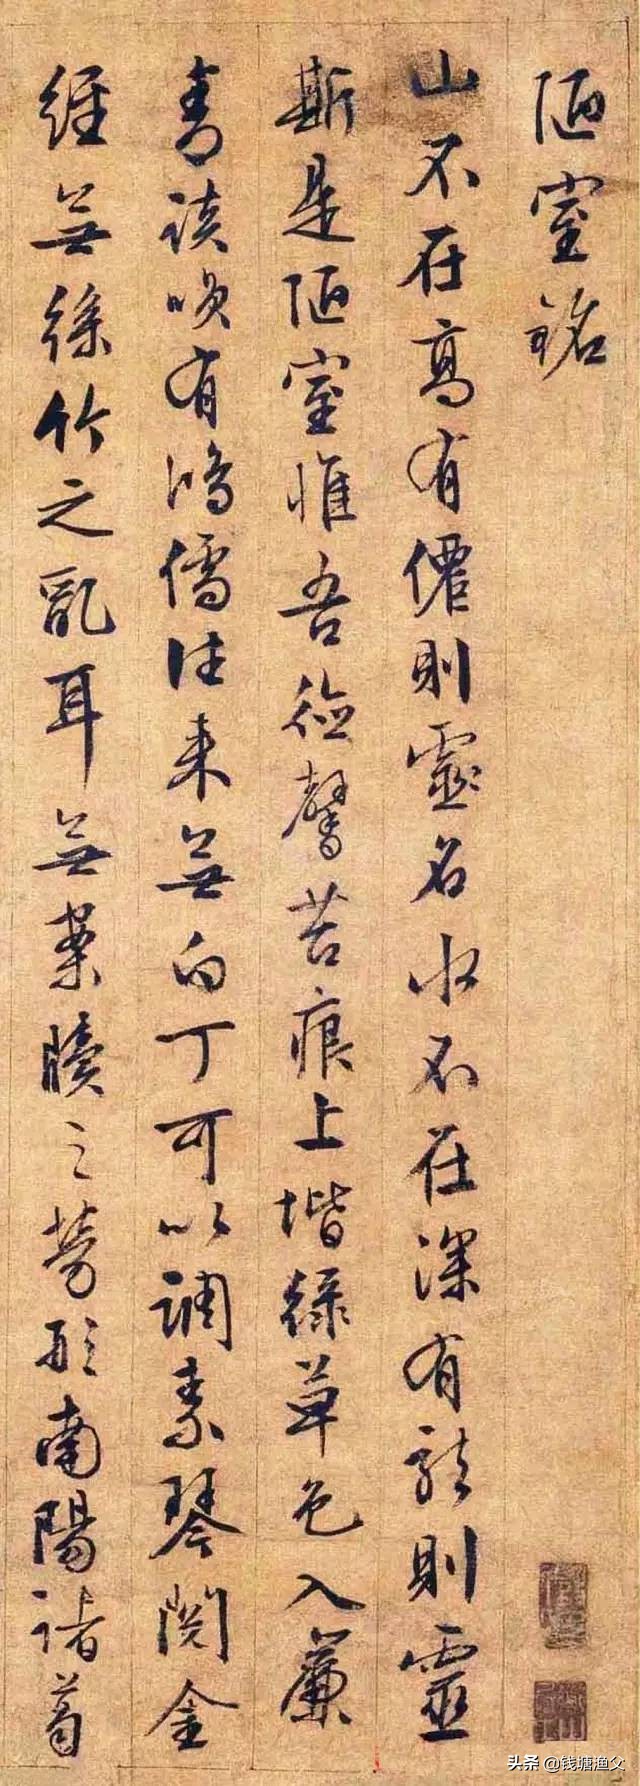 陋室銘
山不在高有僊則靈名水不在深有龍則靈
斯是陋室惟吾德馨苔痕上堦綠草色入簾
青談咲有鴻儒往来無白丁可以調素琴閱金
經無絲竹之亂耳無案牘之勞形南陽諸葛
头条 @钱塘渔父